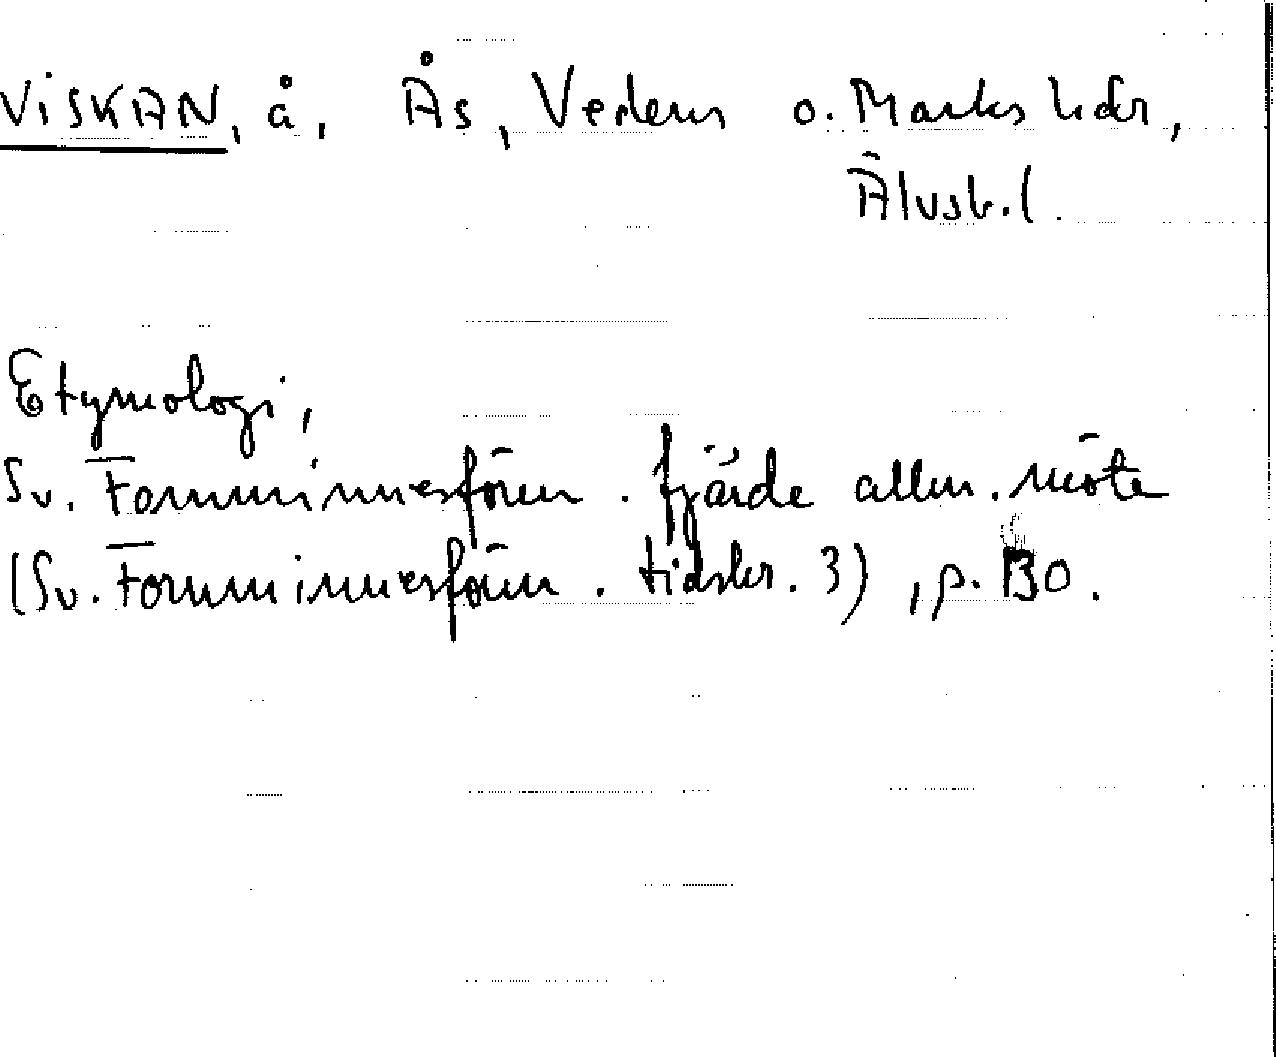 VISKAN, å, Ås, Vedens o. Marks hdr,
Älvsb. l.
Etymologi,
Sv. Fornminnesfören. fjärde allm. möte
(Sv. Fornminnesfören. tidskr. 3), p. 130.